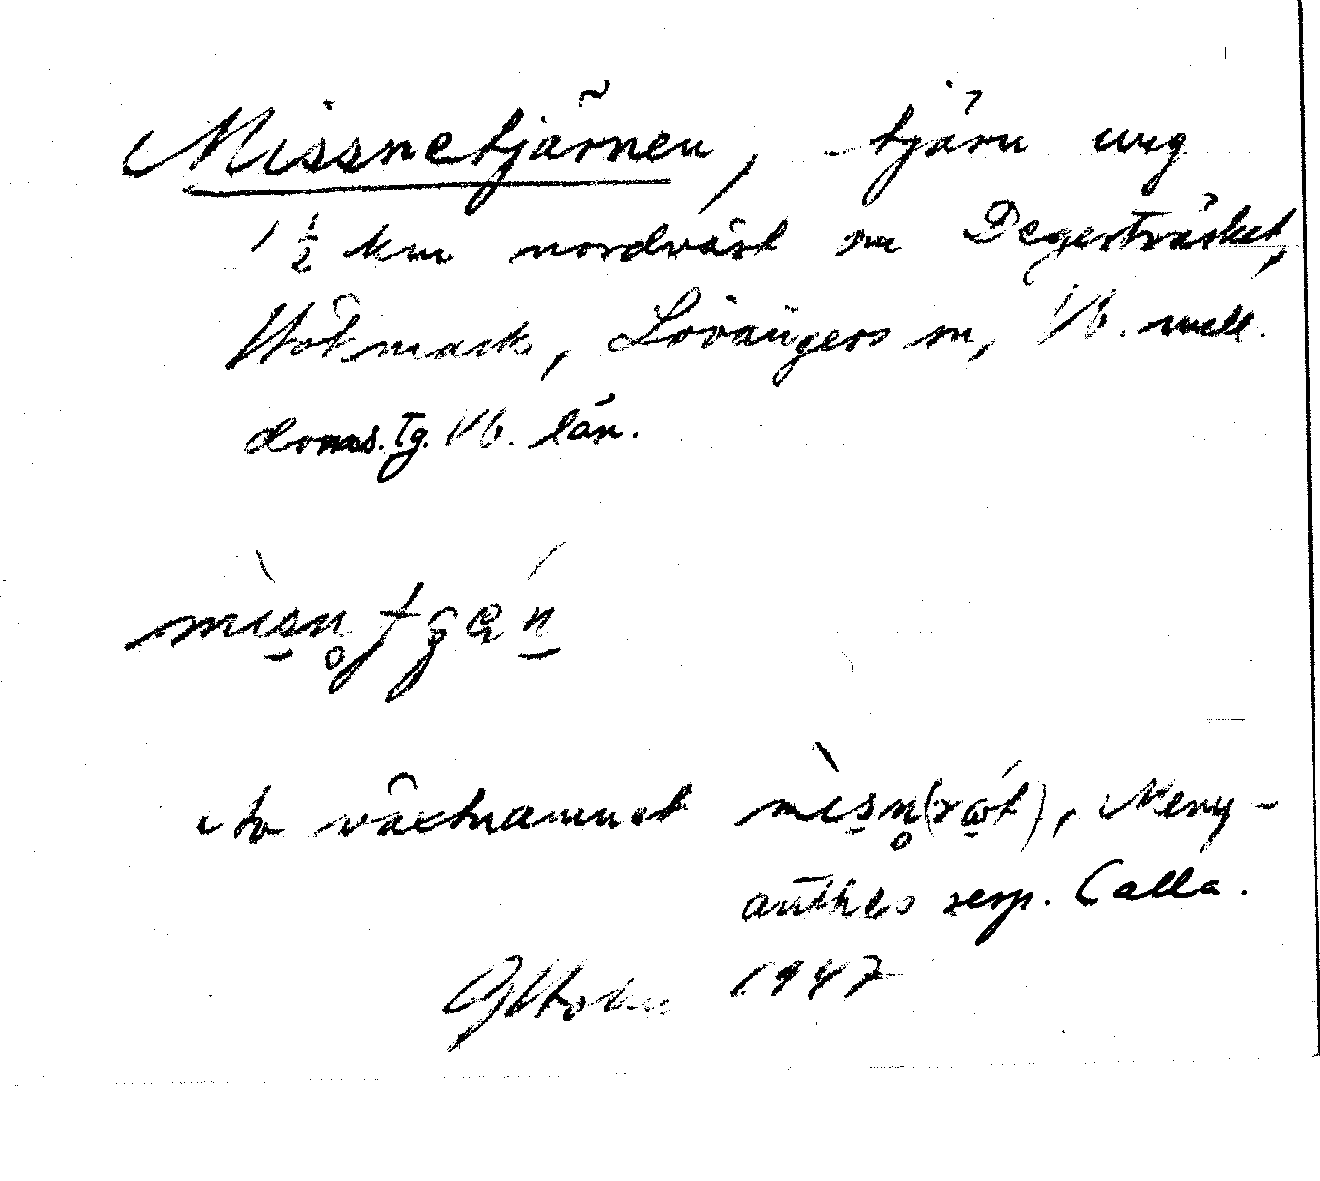 Missnetjärnen, tjärn ung
1 ½ km nordväst om Degerträsket,
Hökmark, Lövångers sn, Vb. mell.
doms. tg. Vb. län.
Av växtnamnet misn̥(rot), Meny-
anthes resp. Calla.
GHolm 1947